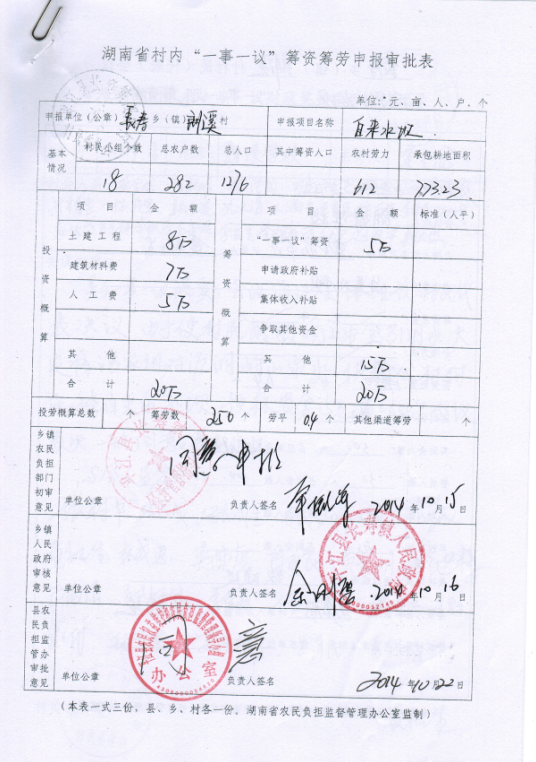 湖南省村内“一事一议”筹资筹劳申报审批表
单位：元、亩、人、户、个
申报单位（公章） 长寿 乡（镇） 村 申报项目名称 自来水
基本情况 村民小组个数 总农户数 总人口 其中筹资人口 农村劳力 承包耕地面积
18 282 1276 612 773.23
投资概算 项 目 金 额 筹资概算 项 目 金 额 标准（人平）
土建工程 8万 “一事一议”筹资 5万
建筑材料费 7万 申请政府补贴
人工费 5万 集体收入补贴
争取其他资金
其 他 其 他 15万
合 计 20万 合 计 20万
投劳概算总数 个 筹劳数 250 个 劳平 0.4 个 其他渠道筹劳 个
乡镇农民负担部门初审意见 同意申报
单位公章 负责人签名 2014年10月15日
乡镇人民政府审核意见
平江县长寿镇人民政府
单位公章 负责人签名 2014年10月16日
县农民负担监管办审批意见 同意
办公室
单位公章 负责人签名 2014年10月22日
（本表一式三份，县、乡、村各一份，湖南省农民负担监督管理办公室监制）